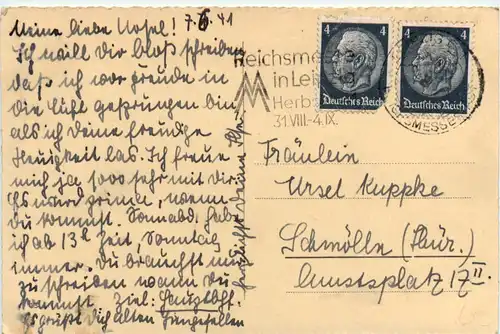 Meine liebe Ursel! 7.6.41
Ich will dir bloß schreiben
daß ich vor Freude in
die Luft gesprungen bin
als ich deine freudige
Neuigkeit las. Ich freue
mich ja sooo sehr mit dir
Es wird prima, wenn
du kommst. Sonnabd. habe
ich ab 13h Zeit, Sonntag
immer. Du brauchst nur
zu schreiben wann du
kommst. Ziel: Hauptbhf.
Es grüßt dich alten Junggesellen
herzlichst deine
4
Deutsches Reich
4
Deutsches Reich
Reichsmesse
in Leipzig
Herbst
31.VIII-4.IX.
Fräulein
Ursel Kuppke
Schmölln (Thür.)
Amtsplatz 17 II